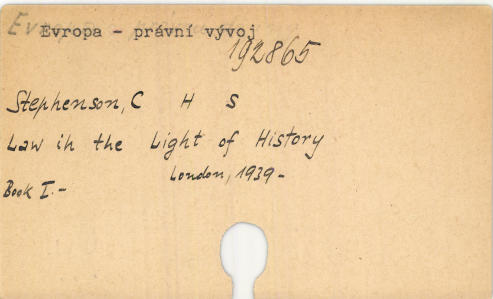 Evropa - právní vývoj
192865
Stephenson, C H S
Law in the Light of History
London, 1939-
Book I.-